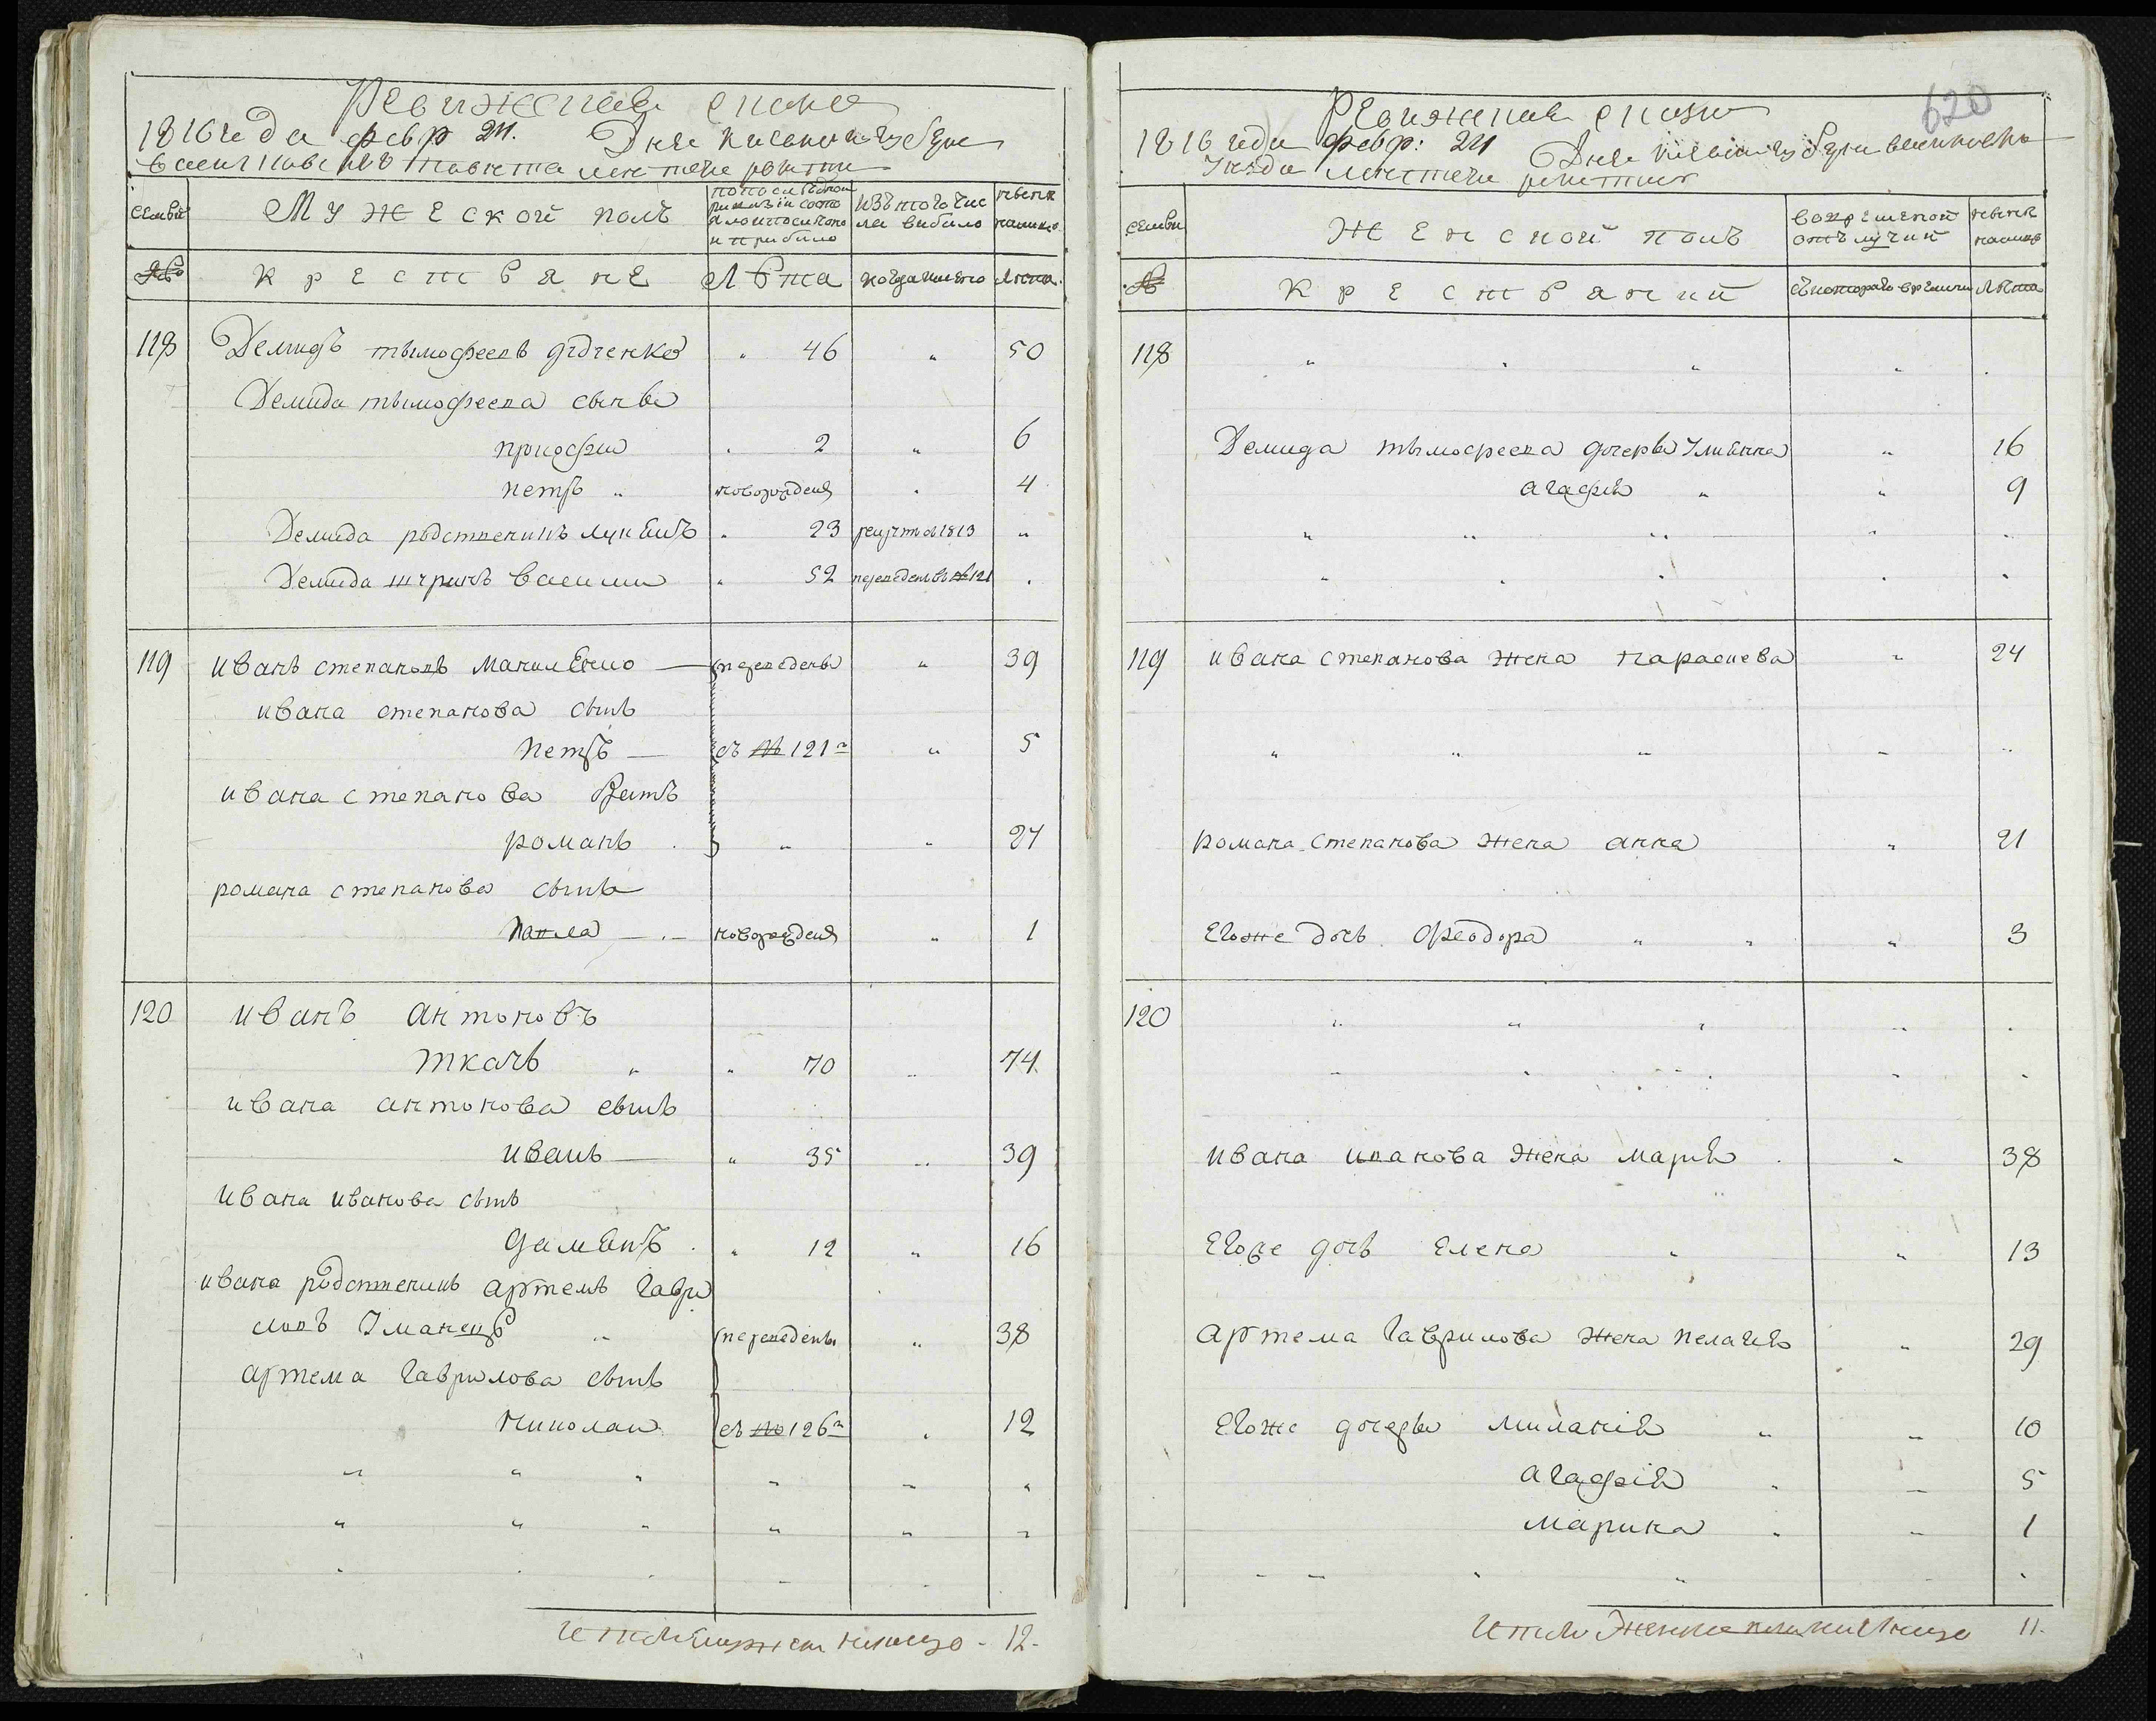 Ревижская скаска
1816 года февр 24. Дня
местечка решетиловки
семьи
Мужеской полъ
по последней ревизіи состояло и после того прибыло
изъ того числа выбыло
ныне на лицо
№
крестьяне
Лѣта
когда имянно
Лѣта
118 Демидъ тымофеевъ дядченко " 46 " 50
Демида тымофеева сынъ
прокофи " 2 " 6
петръ " новорожденъ " 4
Демида родственикъ лукъянъ " 23 рекрутъ в 1813 "
Демида шуринъ василии " 52 переведенъ в № 121 "
119 иванъ степановъ манилѣнко — переведены " 39
ивана степанова сынъ
петръ — съ № 121го " 5
ивана степанова братъ
романъ " " 27
романа степанова сынъ
павла новорожденъ " 1
120 иванъ антоновъ
ткачь " " 70 " 74
ивана антонова сынъ
иванъ — " 35 " 39
ивана иванова сынъ
дамьянъ " 12 " 16
ивана родственикъ артемъ гаври
ловъ Уманецъ " переведены " 38
артема гаврилова сынъ
николаи съ № 126го " 12
Итого мужеска налицо - 12 -
620
Ревижская сказка
1816 года февр: 24 Дня
уезда местечка решетиловки
семьи
Женской полъ
во временной отълучки
ныне налицо
№
Крестьянки
съ котораго времени
Лѣта
118
Демида тымофеева дочеръ Ульянна " 16
агафія " " 9
119 ивана степанова жена параскева " 24
романа степанова жена анна " 21
Егоже дочь феодора " " " 3
120
ивана иванова жена марія " 38
Егоже дочь Елена " " 13
артема гаврилова жена пелагія " 29
Егоже дочеры миланія " " 10
агафія " 5
марина " 1
Итого женска пола налицо 11-